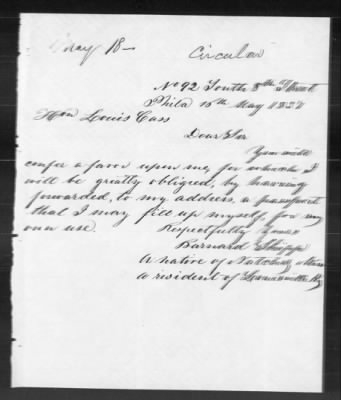 May 18 -
Circular
No 92 South 8th Street
Phila 15th May 1857
Hon Louis Cass
Dear Sir
You will
confer a favor upon me, for which I
will be greatly obliged, by having
forwarded, to my address, a passport
that I may fill up myself, for my
own use.
Respectfully yours
Barnard Shipp
A native of Natchez
a resident of Louisville Ky